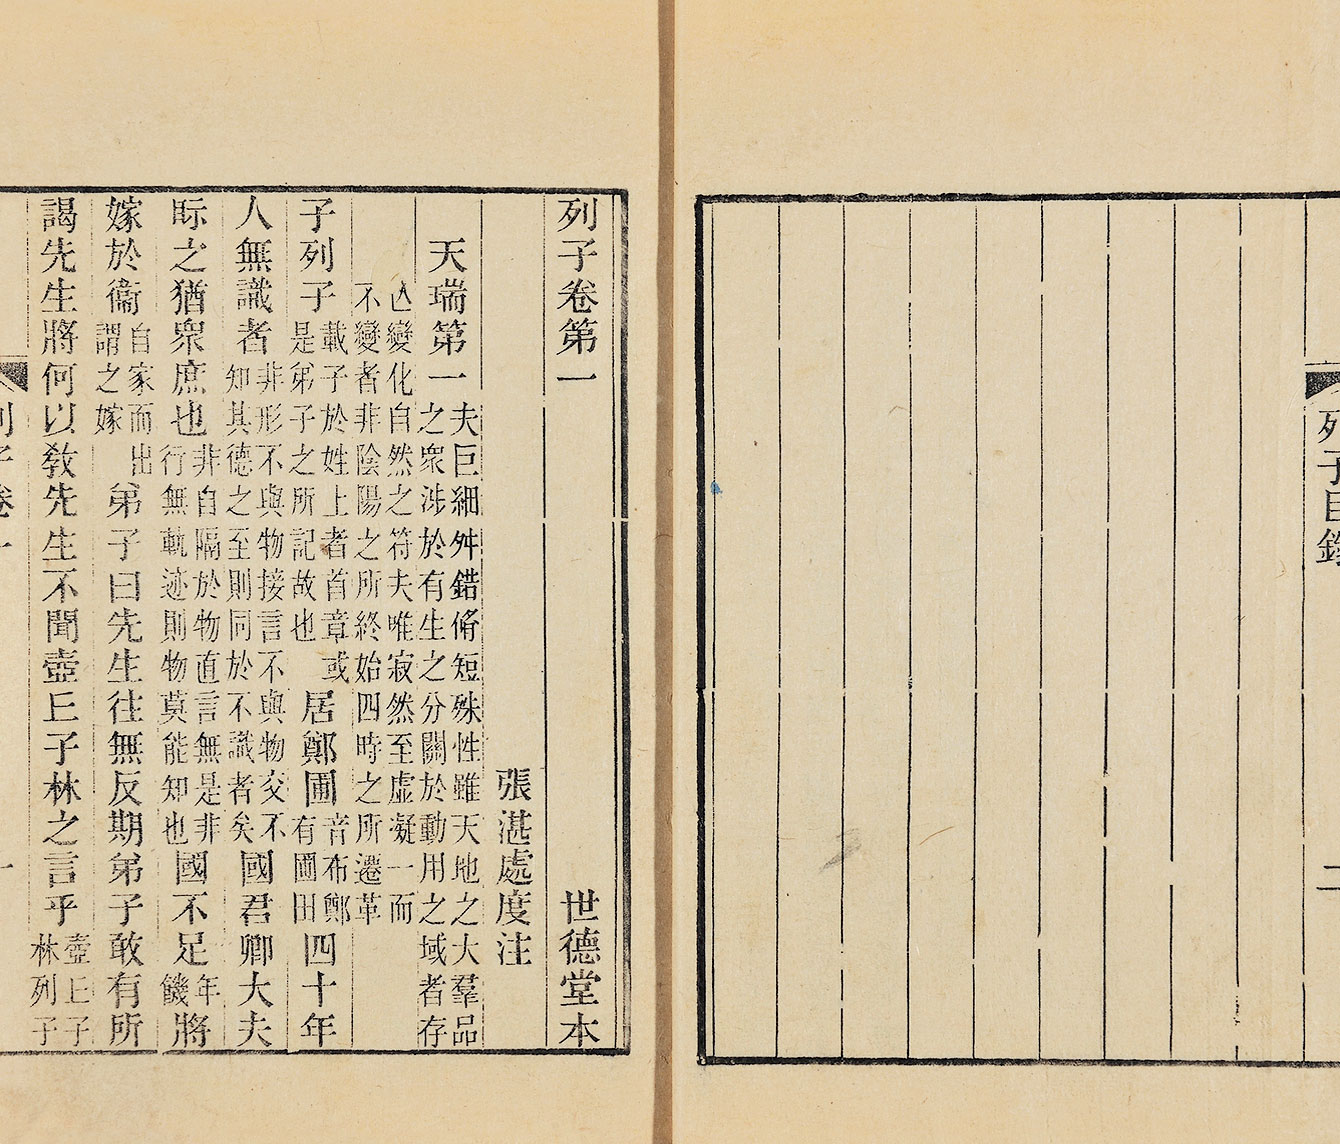 列子目錄
二
列子卷第一
世德堂本
張湛處度注
天瑞第一
夫巨細舛錯脩短殊性雖天地之大羣品
之衆涉於有生之分關於動用之域者存
亾變化自然之符夫唯寂然至虛凝一而
不變者非陰陽之所終始四時之所遷革
子列子
載子於姓上者首章或
是弟子之所記故也
居鄭圃
音布鄭
有圃田
四十年
人無識者
非形不與物接言不與物交不
知其德之至則同於不識者矣
國君卿大夫
眎之猶衆庶也
非自隔於物直言無是非
行無軌迹則物莫能知也
國不足
年
饑
將
嫁於衞
自家而出
謂之嫁
弟子曰先生往無反期弟子敢有所
謁先生將何以敎先生不聞壺丘子林之言乎
壺丘子
林列子
列子卷一
一